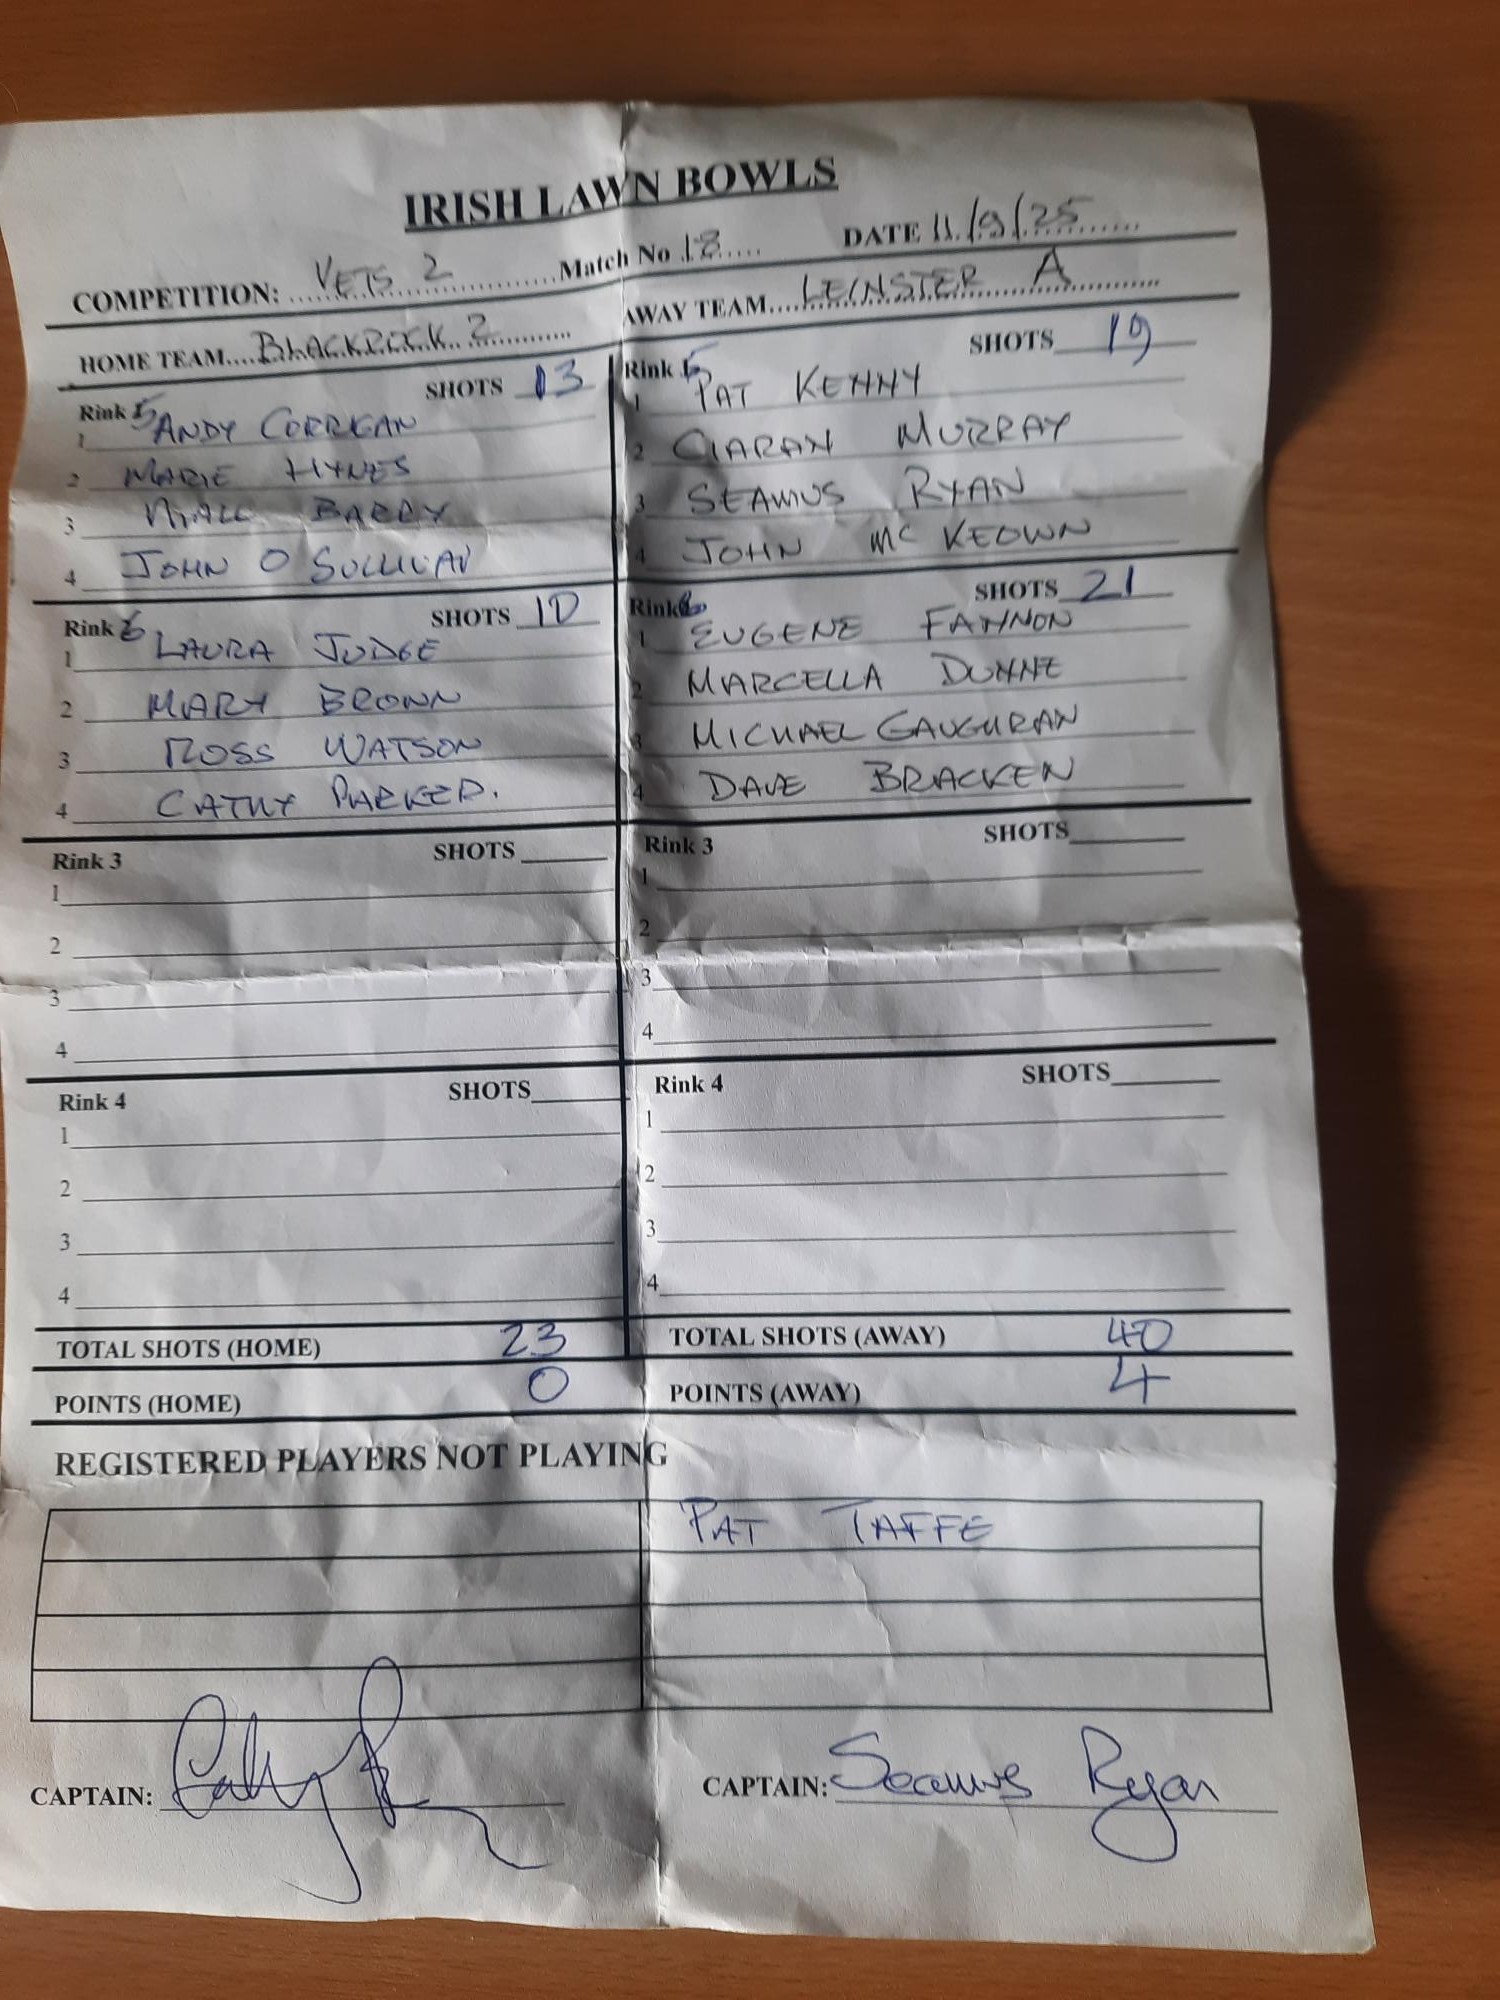 IRISH LAWN BOWLS
COMPETITION: VETS 2 Match No 18 DATE 11/9/25
HOME TEAM BLACKROCK 2 AWAY TEAM LEINSTER A
Rink 5 SHOTS 13
1 ANDY CORRIGAN
2 MARIE HYNES
3 NIALL BARRY
4 JOHN O SULLIVAN
Rink 5 SHOTS 19
1 PAT KENNY
2 CIARAN MURRAY
3 SEAMUS RYAN
4 JOHN MC KEOWN
Rink 6 SHOTS 10
1 LAURA JUDGE
2 MARY BROWN
3 ROSS WATSON
4 CATHY PARKER.
Rink 6 SHOTS 21
1 EUGENE FANNON
2 MARCELLA DUNNE
3 MICHAEL GAUGHRAN
4 DAVE BRACKEN
Rink 3 SHOTS
1
2
3
4
Rink 3 SHOTS
1
2
3
4
Rink 4 SHOTS
1
2
3
4
Rink 4 SHOTS
1
2
3
4
TOTAL SHOTS (HOME) 23 TOTAL SHOTS (AWAY) 40
POINTS (HOME) 0 POINTS (AWAY) 4
REGISTERED PLAYERS NOT PLAYING
PAT TAFFE
CAPTAIN: CAPTAIN: Seamus Ryan